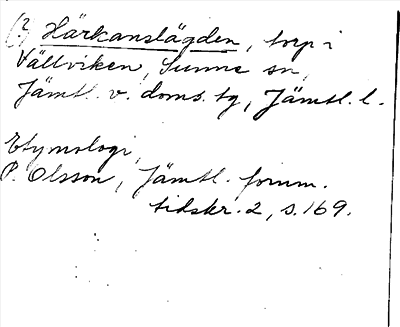 (?) Härkanslägden, torp i
Vällviken, Sunne sn,
Jämtl. v. doms. tg, Jämtl. l.
Etymologi,
P. Olsson, Jämtl. fornm.
tidskr. 2, s. 169.